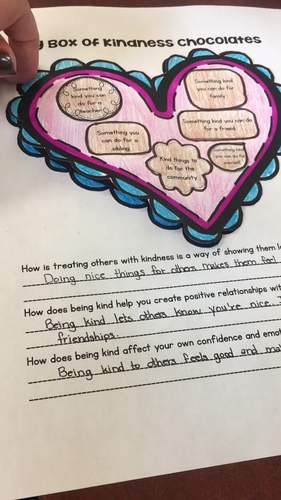 Box of Kindness Chocolates
Something
kind you can
do for a
teacher
Something kind
you can do for
family
Something you
can do for a
sibling
Something kind you can do
for a friend
Kind things to
do for the
community
Something kind
you can do for
yourself
How is treating others with kindness is a way of showing them
Doing nice things for others makes them feel
How does being kind help you create positive relationships
Being kind lets others know you're nice.
friendships.
How does being kind affect your own confidence and
Being kind to others feels good and